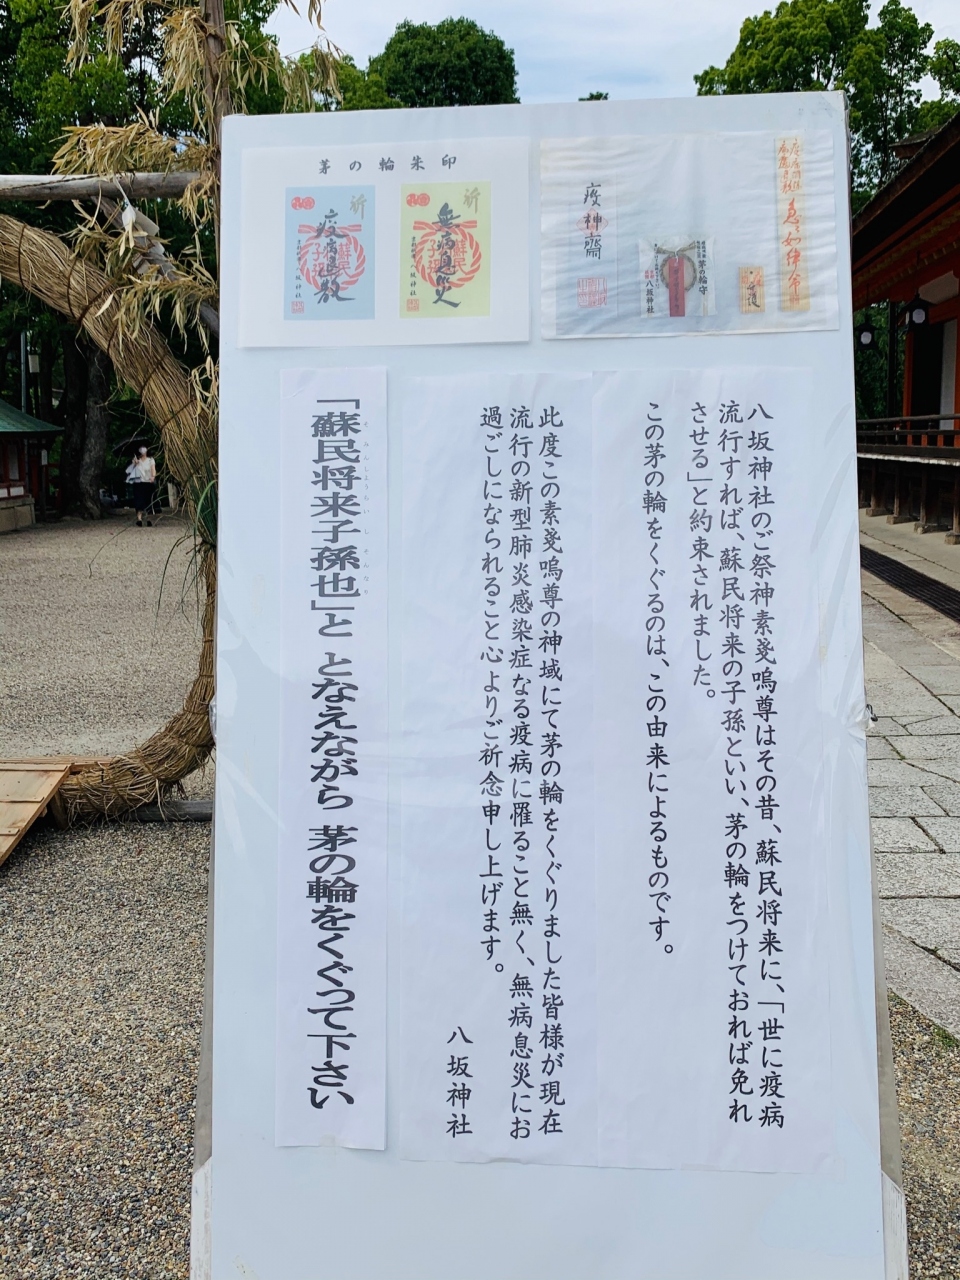 茅の輪朱印
祈
疫病退散
八坂神社
祈
無病息災
八坂神社
疫神齋
茅の輪守
八坂神社
八坂神社のご祭神素戔嗚尊はその昔、蘇民将来に、「世に疫病
流行すれば、蘇民将来の子孫といい、茅の輪をつけておれば免れ
させる」と約束されました。
この茅の輪をくぐるのは、この由来によるものです。
此度この素戔嗚尊の神域にて茅の輪をくぐりました皆様が現在
流行の新型肺炎感染症なる疫病に罹ること無く、無病息災にお
過ごしになられること心よりご祈念申し上げます。
八坂神社
「蘇民将来子孫也」と となえながら 茅の輪をくぐって下さい
そみんしょうらいしそんなり